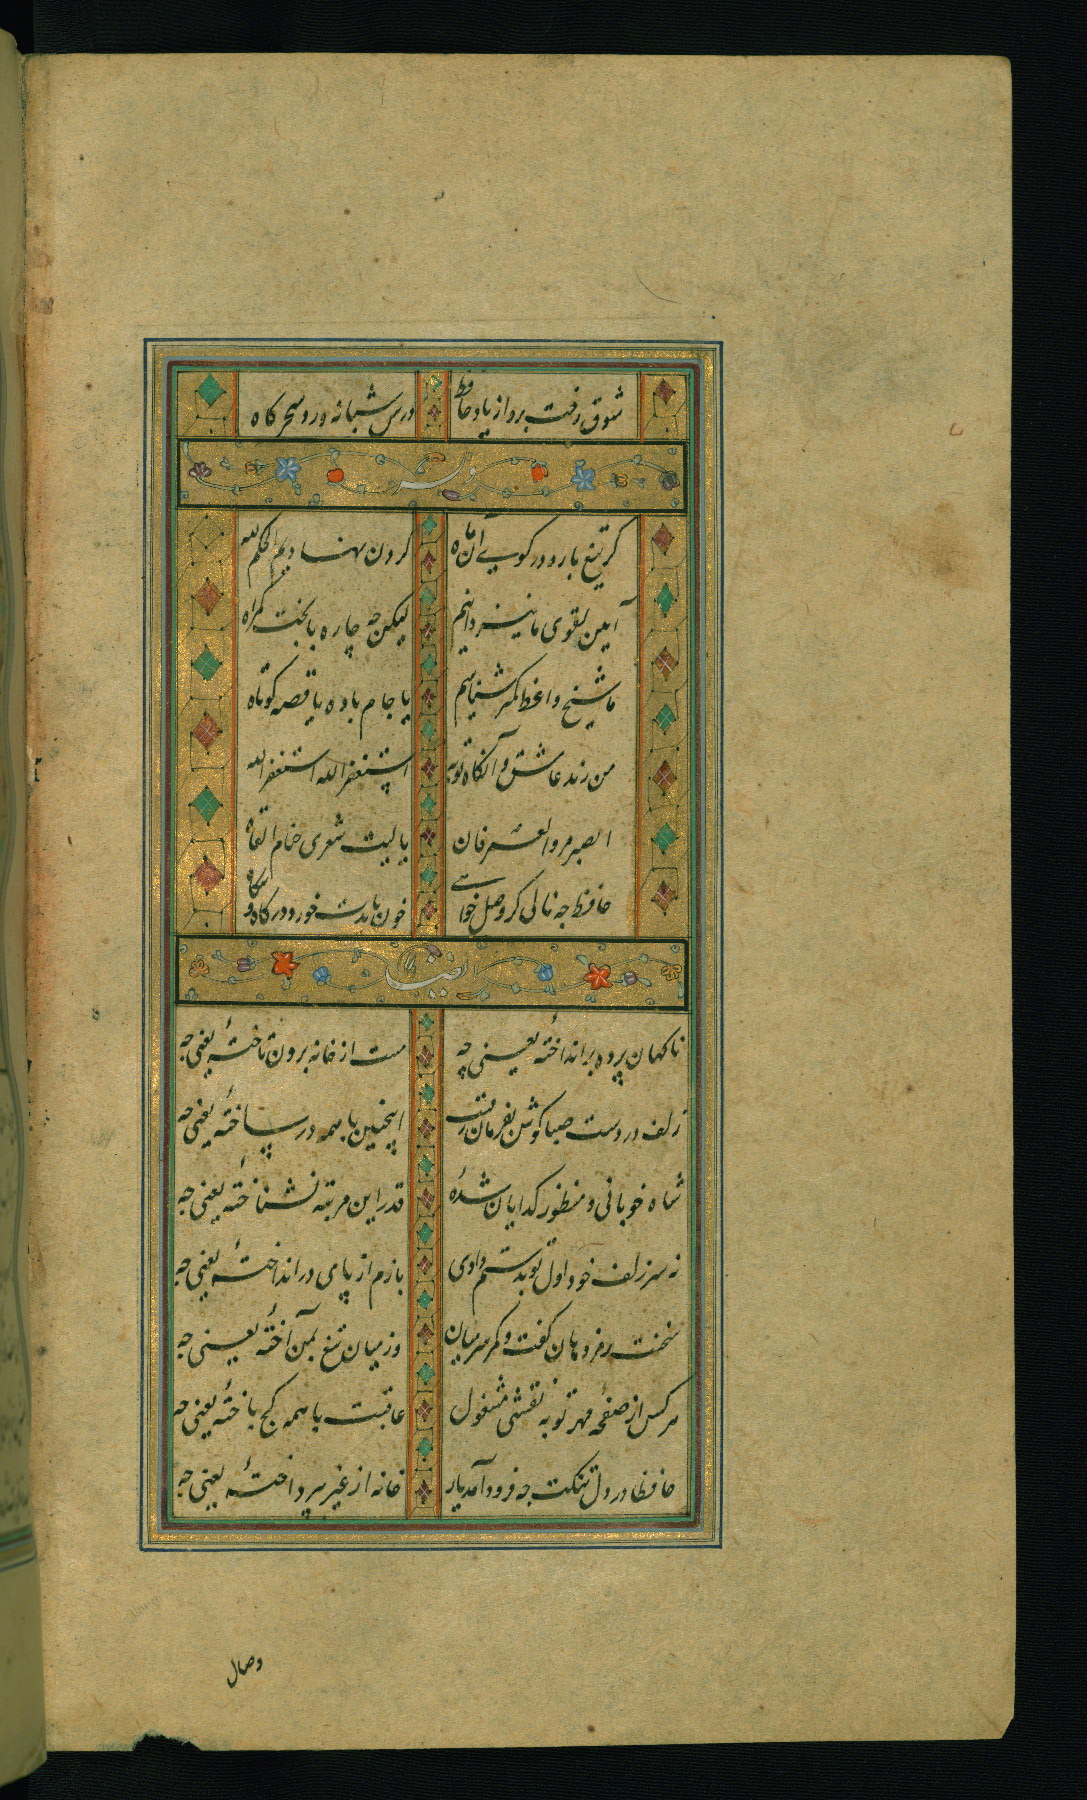 شوق رخت برد از یاد حافظ درس شبانه ورد سحرگاه
وله
گر تیغ بارد در کوی آن ماه گردن نهادیم الحکم لله
آیین تقوی ما نیز دانیم لیکن چه چاره با بخت گمراه
ما شیخ و واعظ کمتر شناسیم یا جام باده یا قصه کوتاه
من رند عاشق و آنگاه توبه استغفر الله استغفر الله
الصبر مر والعمر فان یا لیت شعری حتام القاه
حافظ چه نالی گر وصل خواهی خون بایدت خورد در گاه و بیگاه
ایضا
ناگهان پرده برانداختهٔ یعنی چه مست از خانه برون تاختهٔ یعنی چه
زلف در دست صبا گوش بفرمان رقیب اینچنین با همه در ساختهٔ یعنی چه
شاه خوبانی و منظور گدایان شدهٔ قدر این مرتبه نشناختهٔ یعنی چه
نه سر زلف خود اول تو بدستم دادی بازم از پای در انداختهٔ یعنی چه
سخنت رمز دهان گفت و کمر سر میان وز میان تیغ بمن آختهٔ یعنی چه
هر کس از صفحهٔ مهر تو به نقشی مشغول عاقبت با همه کج باختهٔ یعنی چه
حافظا در دل تنگت چه فرود آمد یار خانه از غیر نپرداختهٔ یعنی چه
وصال